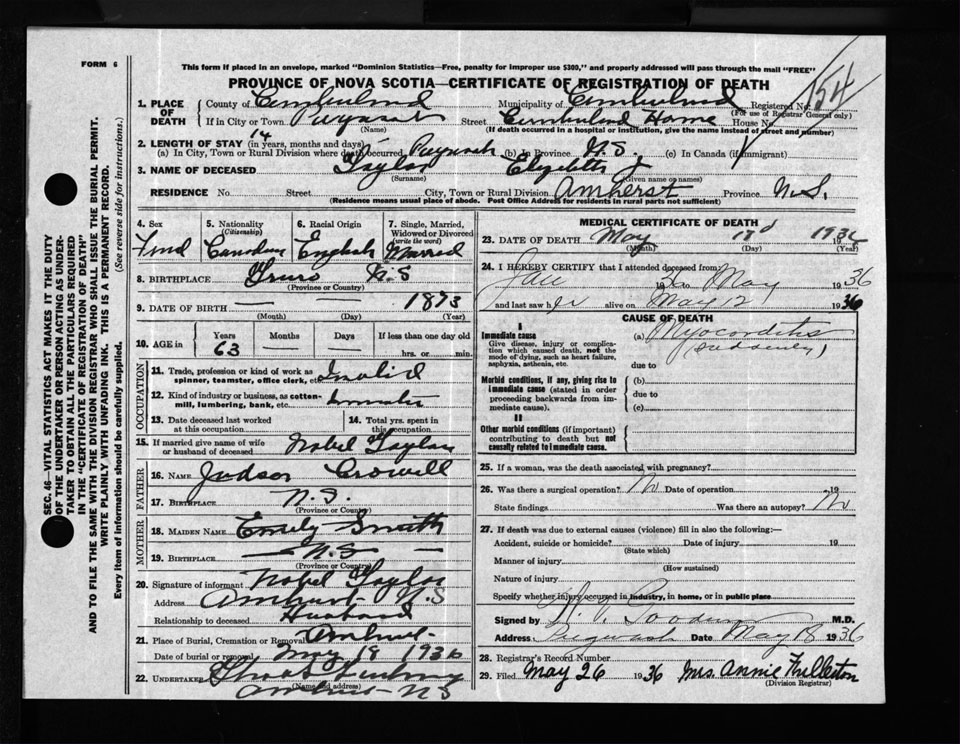 FORM 6
This form if placed in an envelope, marked "Dominion Statistics—Free, penalty for improper use $300," and properly addressed will pass through the mail "FREE"
PROVINCE OF NOVA SCOTIA—CERTIFICATE OF REGISTRATION OF DEATH
154
SEC. 46—VITAL STATISTICS ACT MAKES IT THE DUTY
OF THE UNDERTAKER OR PERSON ACTING AS UNDER-
TAKER TO OBTAIN ALL THE PARTICULARS REQUIRED
IN THE "CERTIFICATE OF REGISTRATION OF DEATH"
AND TO FILE THE SAME WITH THE DIVISION REGISTRAR WHO SHALL ISSUE THE BURIAL PERMIT.
WRITE PLAINLY WITH UNFADING INK. THIS IS A PERMANENT RECORD.
Every item of information should be carefully supplied. (See reverse side for instructions.)
1. PLACE OF DEATH
County of Cumberland Municipality of Cumberland Registered No.
(For use of Registrar General only)
If in City or Town Pugwash Street Cumberland Home House No.
(Name) (If death occurred in a hospital or institution, give the name instead of street and number)
2. LENGTH OF STAY (in years, months and days) 14
(a) In City, Town or Rural Division where death occurred Pugwash (b) In Province N.S. (c) In Canada (if immigrant)
3. NAME OF DECEASED Taylor Elizabeth J
(Surname) (Given name or names)
RESIDENCE No. Street City, Town or Rural Division Amherst Province N.S.
(Residence means usual place of abode. Post Office Address for residents in rural parts not sufficient)
4. Sex 5. Nationality (Citizenship) 6. Racial Origin 7. Single, Married, Widowed or Divorced (write the word)
Canadian English Married
8. BIRTHPLACE Truro N.S
(Province or Country)
9. DATE OF BIRTH — — 1873
(Month) (Day) (Year)
10. AGE in Years Months Days If less than one day old
63 — — hrs. or min.
OCCUPATION
11. Trade, profession or kind of work as
spinner, teamster, office clerk, etc. Invalid
12. Kind of industry or business, as cotton-
mill, lumbering, bank, etc.
13. Date deceased last worked
at this occupation
14. Total yrs. spent in
this occupation
15. If married give name of wife
or husband of deceased Nobel Taylor
FATHER
16. NAME Judson Crowell
17. BIRTHPLACE N.S.
(Province or Country)
MOTHER
18. MAIDEN NAME Emily Smith
19. BIRTHPLACE — N.S —
(Province or Country)
20. Signature of informant Nobel Taylor
Address Amherst N.S
Relationship to deceased Husband
21. Place of Burial, Cremation or Removal Amherst
Date of burial or removal May 19 1936
22. UNDERTAKER
(Name and address)
Amherst N S
MEDICAL CERTIFICATE OF DEATH
23. DATE OF DEATH May 17 1936
(Month) (Day) (Year)
24. I HEREBY CERTIFY that I attended deceased from:
Jan 36 to May 1936
and last saw her alive on May 12 1936
CAUSE OF DEATH
I
Immediate cause
Give disease, injury or complica-
tion which caused death, not the
mode of dying, such as heart failure,
asphyxia, asthenia, etc.
(a) Myocarditis
(suddenly)
due to
Morbid conditions, if any, giving rise to
immediate cause (stated in order
proceeding backwards from im-
mediate cause).
(b)
due to
(c)
II
Other morbid conditions (if important)
contributing to death but not
causally related to immediate cause.
25. If a woman, was the death associated with pregnancy?
26. Was there a surgical operation? No Date of operation 19
State findings Was there an autopsy? No
27. If death was due to external causes (violence) fill in also the following:—
Accident, suicide or homicide? Date of injury 19
(State which)
Manner of injury
(How sustained)
Nature of injury
Specify whether injury occurred in industry, in home, or in public place
Signed by M.D.
Address Pugwash Date May 18 1936
28. Registrar's Record Number
29. Filed May 26 1936 Mrs. Annie Fullerton
(Division Registrar)